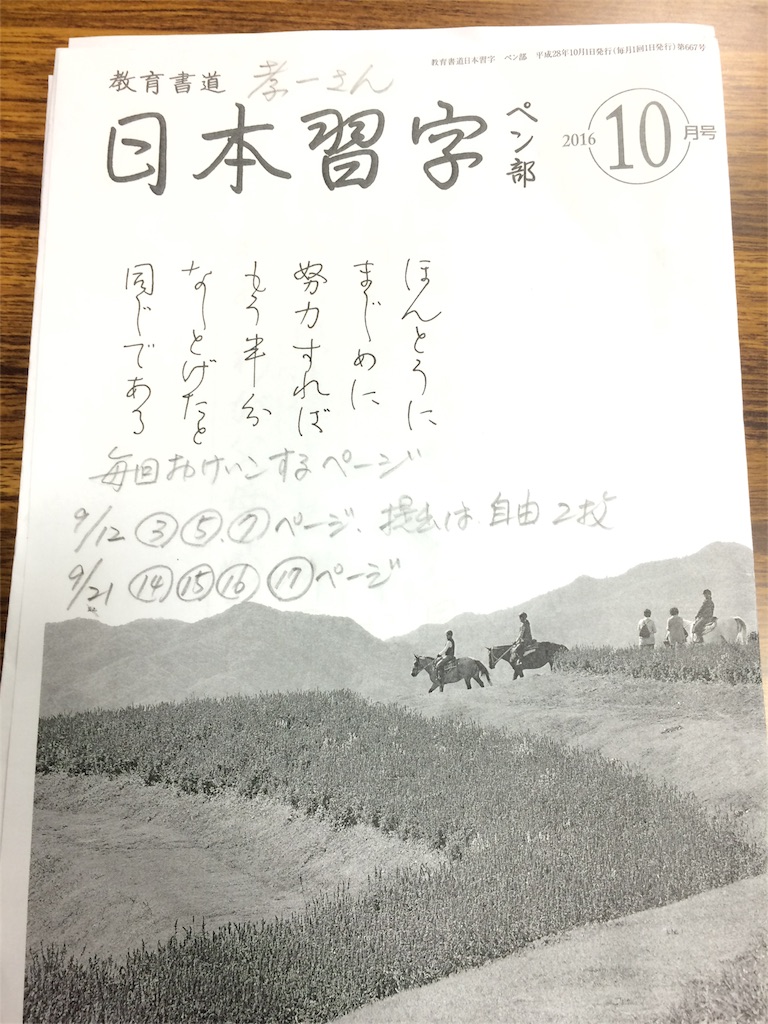 教育書道日本習字 ペン部 平成28年10月1日発行(毎月1回1日発行)第667号
教育書道 孝一さん
日本習字 ペン部
2016 10月号
ほんとうに
まじめに
努力すれば
もう半分
なしとげたと
同じである
毎回おけいこするページ
9/12 ③ ⑤. ⑦ページ、提出は自由2枚
9/21 ⑭ ⑮ ⑯ ⑰ページ